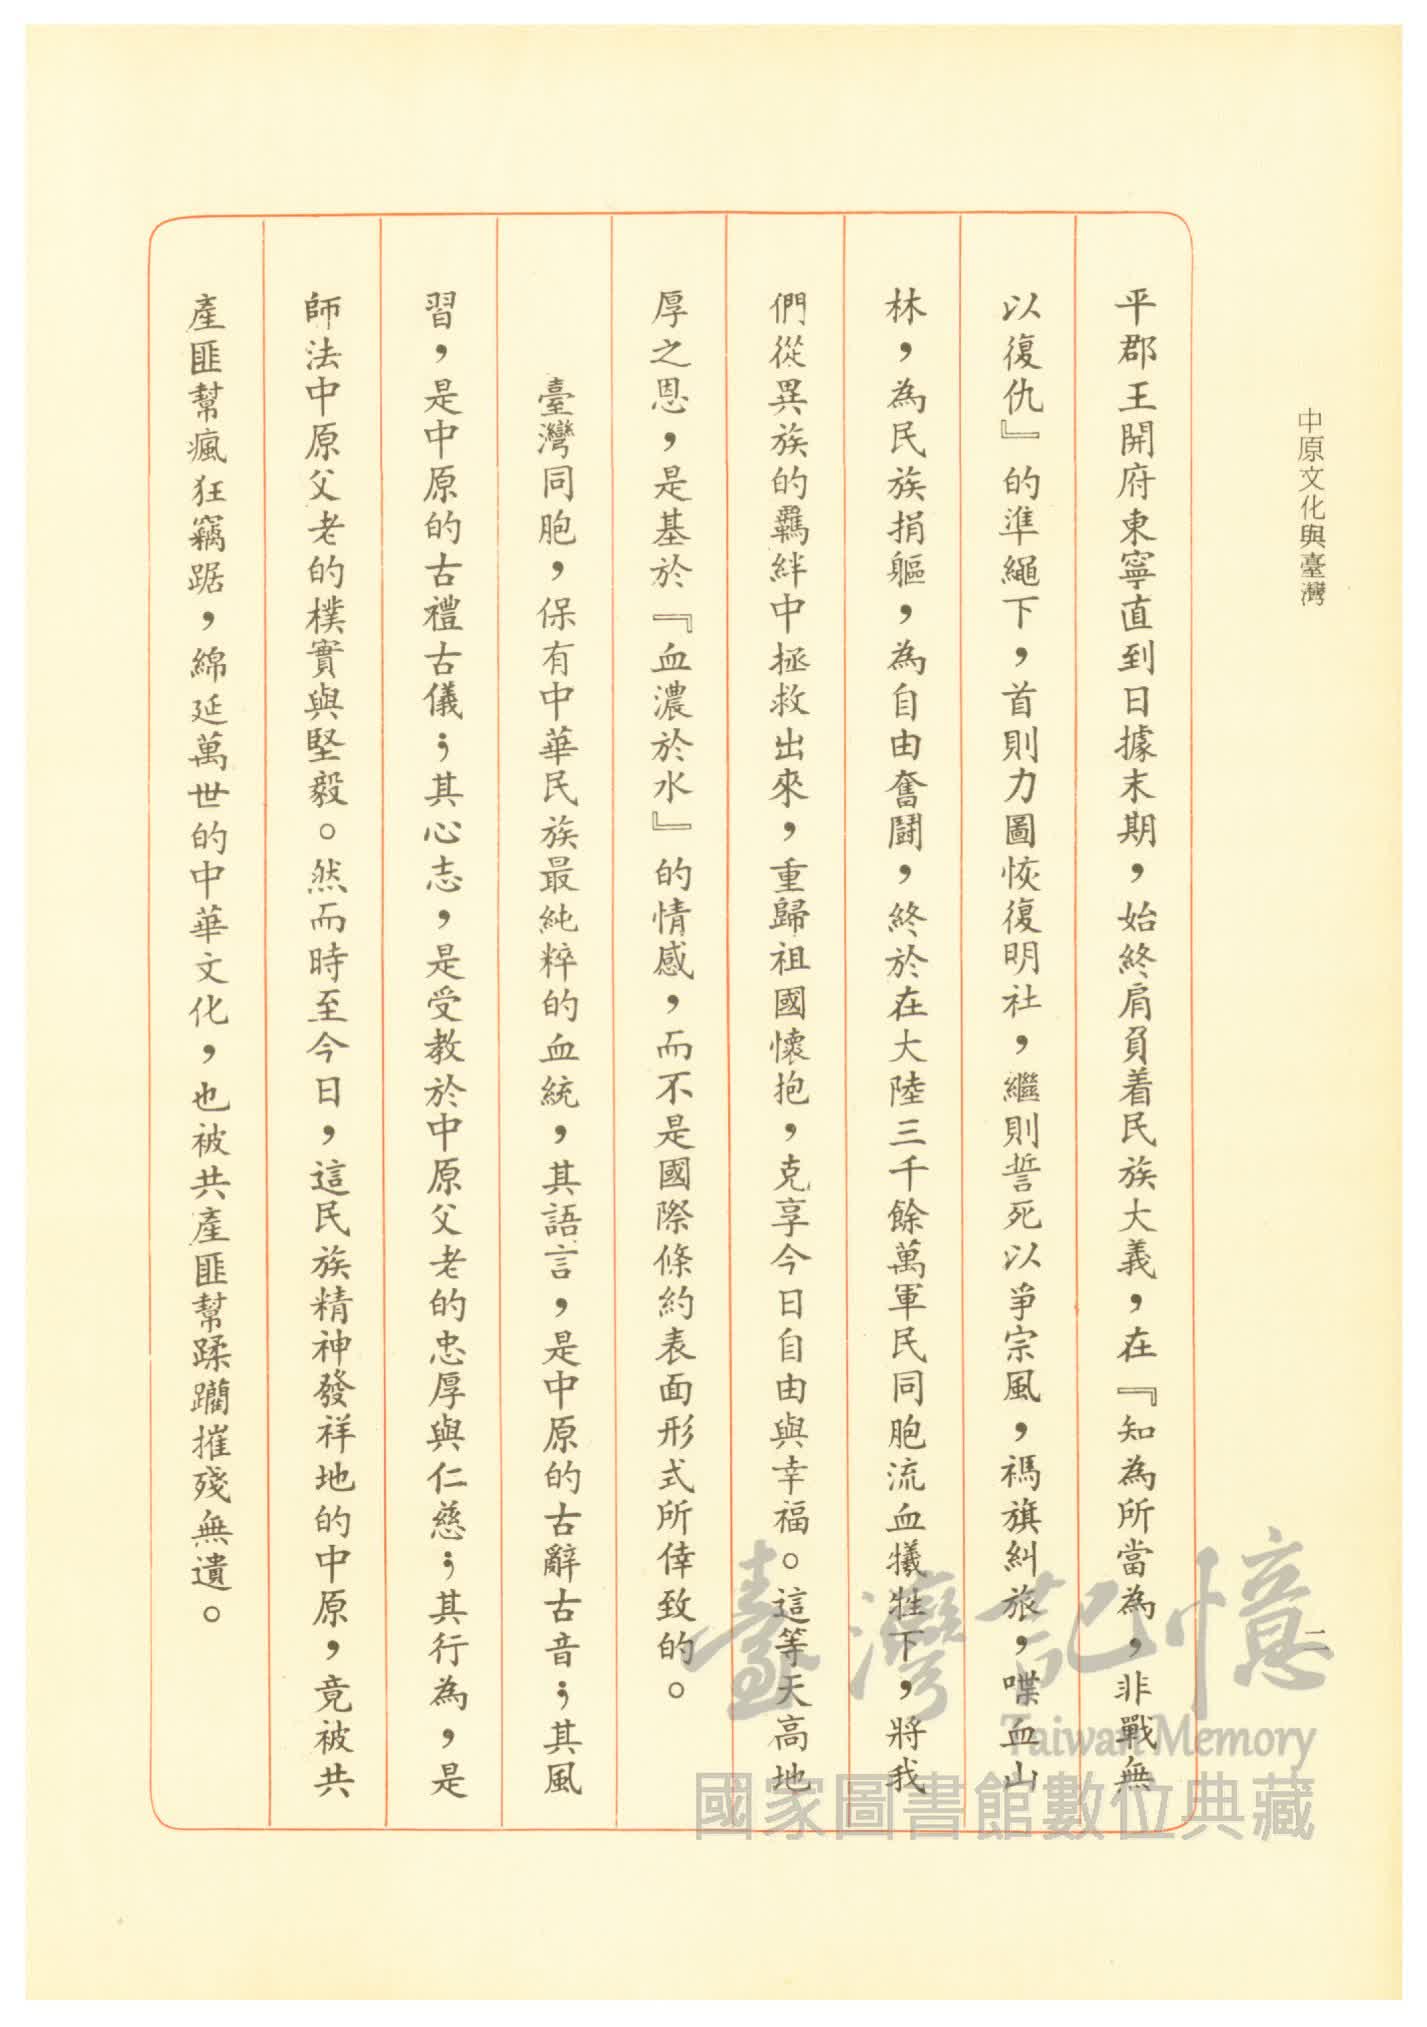 中原文化與臺灣
二
平郡王開府東寧直到日據末期，始終肩負着民族大義，在『知為所當為，非戰無
以復仇』的準繩下，首則力圖恢復明社，繼則誓死以爭宗風，禡旗糾旅，喋血山
林，為民族捐軀，為自由奮鬪，終於在大陸三千餘萬軍民同胞流血犧牲下，將我
們從異族的羈絆中拯救出來，重歸祖國懷抱，克享今日自由與幸福。這等天高地
厚之恩，是基於『血濃於水』的情感，而不是國際條約表面形式所倖致的。
臺灣同胞，保有中華民族最純粹的血統，其語言，是中原的古辭古音；其風
習，是中原的古禮古儀；其心志，是受教於中原父老的忠厚與仁慈；其行為，是
師法中原父老的樸實與堅毅。然而時至今日，這民族精神發祥地的中原，竟被共
產匪幫瘋狂竊踞，綿延萬世的中華文化，也被共產匪幫蹂躪摧殘無遺。
臺灣記憶
Taiwan Memory
國家圖書館數位典藏